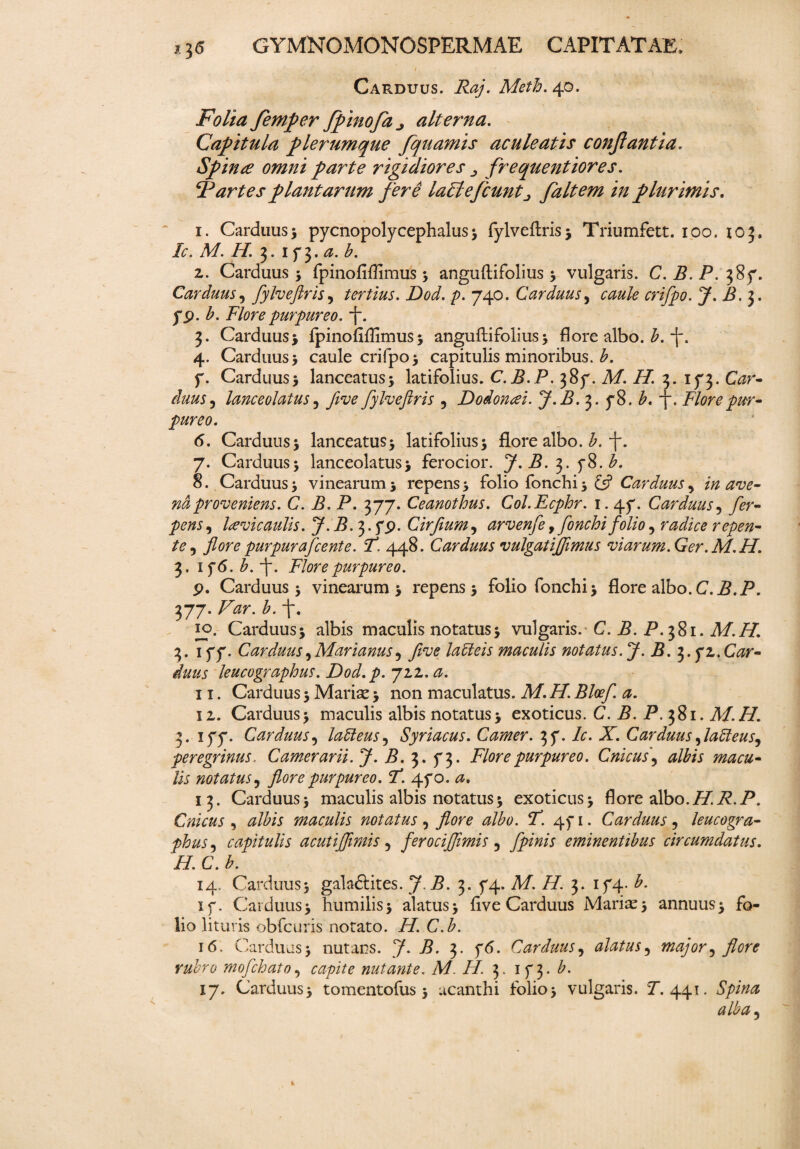 136 GYMNOMONOSPERMAE CAPITATAE.
Carduus. Raj. Meth. 40.
Folia ſemper ſpinoſa, alterna.
Capitula plerumque ſquamis aculeatis conſtantia.
Spinæ omni parte rigidiores, frequentiores.
Partes plantarum ferè lacteſcunt, ſaltem in plurimis.
1. Carduus; pycnopolycephalus; ſylveſtris; Triumfett. 100. 103.
Ic. M. H. 3. 153. a. b.
2. Carduus; ſpinoſiſſimus; anguſtifolius; vulgaris. C. B. P. 385.
Carduus, ſylveſtris, tertius. Dod. p. 740. Carduus, caule criſpo. J. B. 3.
59. b. Flore purpureo. †.
3. Carduus; ſpinoſiſſimus; anguſtifolius; flore albo. b. †.
4. Carduus; caule criſpo; capitulis minoribus. b.
5. Carduus; lanceatus; latifolius. C. B. P. 385. M. H. 3. 153. Car-
duus, lanceolatus, ſive ſylveſtris, Dodonæi. J. B. 3. 58. b. †. Flore pur-
pureo.
6. Carduus; lanceatus; latifolius; flore albo. b. †.
7. Carduus; lanceolatus; ferocior. J. B. 3. 58. b.
8. Carduus; vinearum; repens; folio ſonchi; & Carduus, in ave-
nâ proveniens. C. B. P. 377. Ceanothus. Col. Ecphr. 1. 45. Carduus, ſer-
pens, lævicaulis. J. B. 3. 59. Cirſium, arvenſe, ſonchi folio, radice repen-
te, flore purpuraſcente. T. 448. Carduus vulgatiſſimus viarum. Ger. M. H.
3. 156. b. †. Flore purpureo.
9. Carduus; vinearum; repens; folio ſonchi; flore albo. C. B. P.
377. Var. b. †.
10. Carduus; albis maculis notatus; vulgaris. C. B. P. 381. M. H.
3. 155. Carduus, Marianus, ſive lacteis maculis notatus. J. B. 3. 52. Car-
duus leucographus. Dod. p. 722. a.
11. Carduus; Mariæ; non maculatus. M. H. Blœſ. a.
12. Carduus; maculis albis notatus; exoticus. C. B. P. 381. M. H.
3. 155. Carduus, lacteus, Syriacus. Camer. 35. Ic. X. Carduus, lacteus,
peregrinus. Camerarii. J. B. 3. 53. Flore purpureo. Cnicus, albis macu-
lis notatus, flore purpureo. T. 450. a.
13. Carduus; maculis albis notatus; exoticus; flore albo. H. R. P.
Cnicus, albis maculis notatus, flore albo. T. 451. Carduus, leucogra-
phus, capitulis acutiſſimis, ferociſſimis, ſpinis eminentibus circumdatus.
H. C. b.
14. Carduus; galactites. J. B. 3. 54. M. H. 3. 154. b.
15. Carduus; humilis; alatus; ſive Carduus Mariæ; annuus; fo-
lio lituris obſcuris notato. H. C. b.
16. Carduus; nutans. J. B. 3. 56. Carduus, alatus, major, flore
rubro moſchato, capite nutante. M. H. 3. 153. b.
17. Carduus; tomentoſus; acanthi folio; vulgaris. T. 441. Spina
alba,